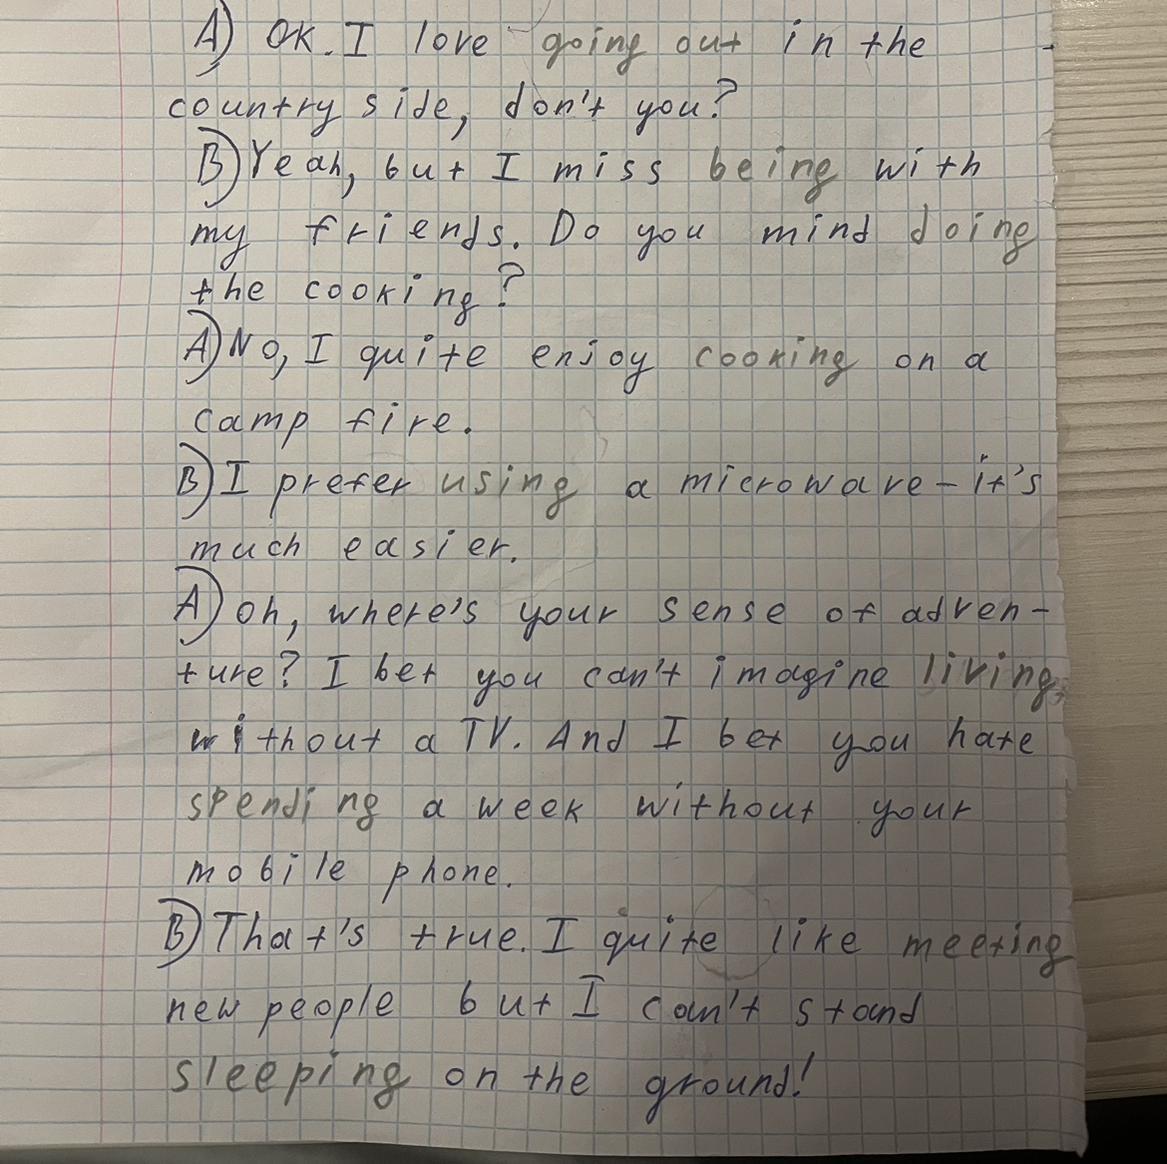 A) OK. I love going out in the
country side, don't you?
B) Yeah, but I miss being with
my friends. Do you mind doing
the cooking?
A) No, I quite enjoy cooking on a
camp fire.
B) I prefer using a microwave – it's
much easier.
A) oh, where's your sense of adven-
ture? I bet you can't imagine living
without a TV. And I bet you hate
spending a week without your
mobile phone.
B) That's true. I quite like meeting
new people but I can't stand
sleeping on the ground!